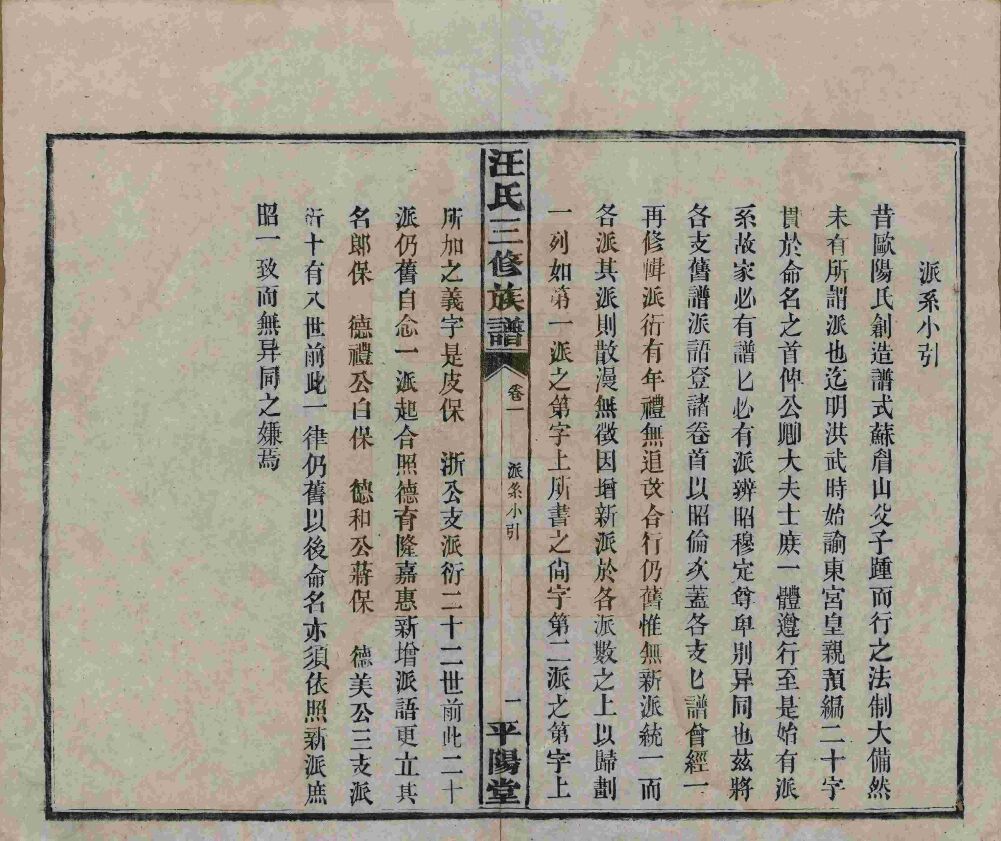 派系小引
昔歐陽氏創造譜式蘇眉山父子踵而行之法制大備然
未有所謂派也迄明洪武時始諭東宮皇親預編二十字
貫於命名之首俾公卿大夫士庶一體遵行至是始有派
系故家必有譜匕必有派辨昭穆定尊卑別异同也兹將
各支舊譜派語登諸卷首以昭倫次蓋各支匕譜曾經一
再修輯派衍有年禮無追改合行仍舊惟無新派統一而
各派其派則散漫無徵因增新派於各派數之上以歸劃
一列如第一派之第字上所書之尙字第二派之第字上
汪氏三修族譜
卷一
派系小引
一
平陽堂
所加之義字是皮保 浙公支派衍二十二世前此二十
派仍舊自念一派起合照德育隆嘉惠新增派語更立其
名郎保 德禮公白保 德和公蔣保 德美公三支派
衍十有入世前此一律仍舊以後命名亦須依照新派庶
昭一致而無异同之嫌焉